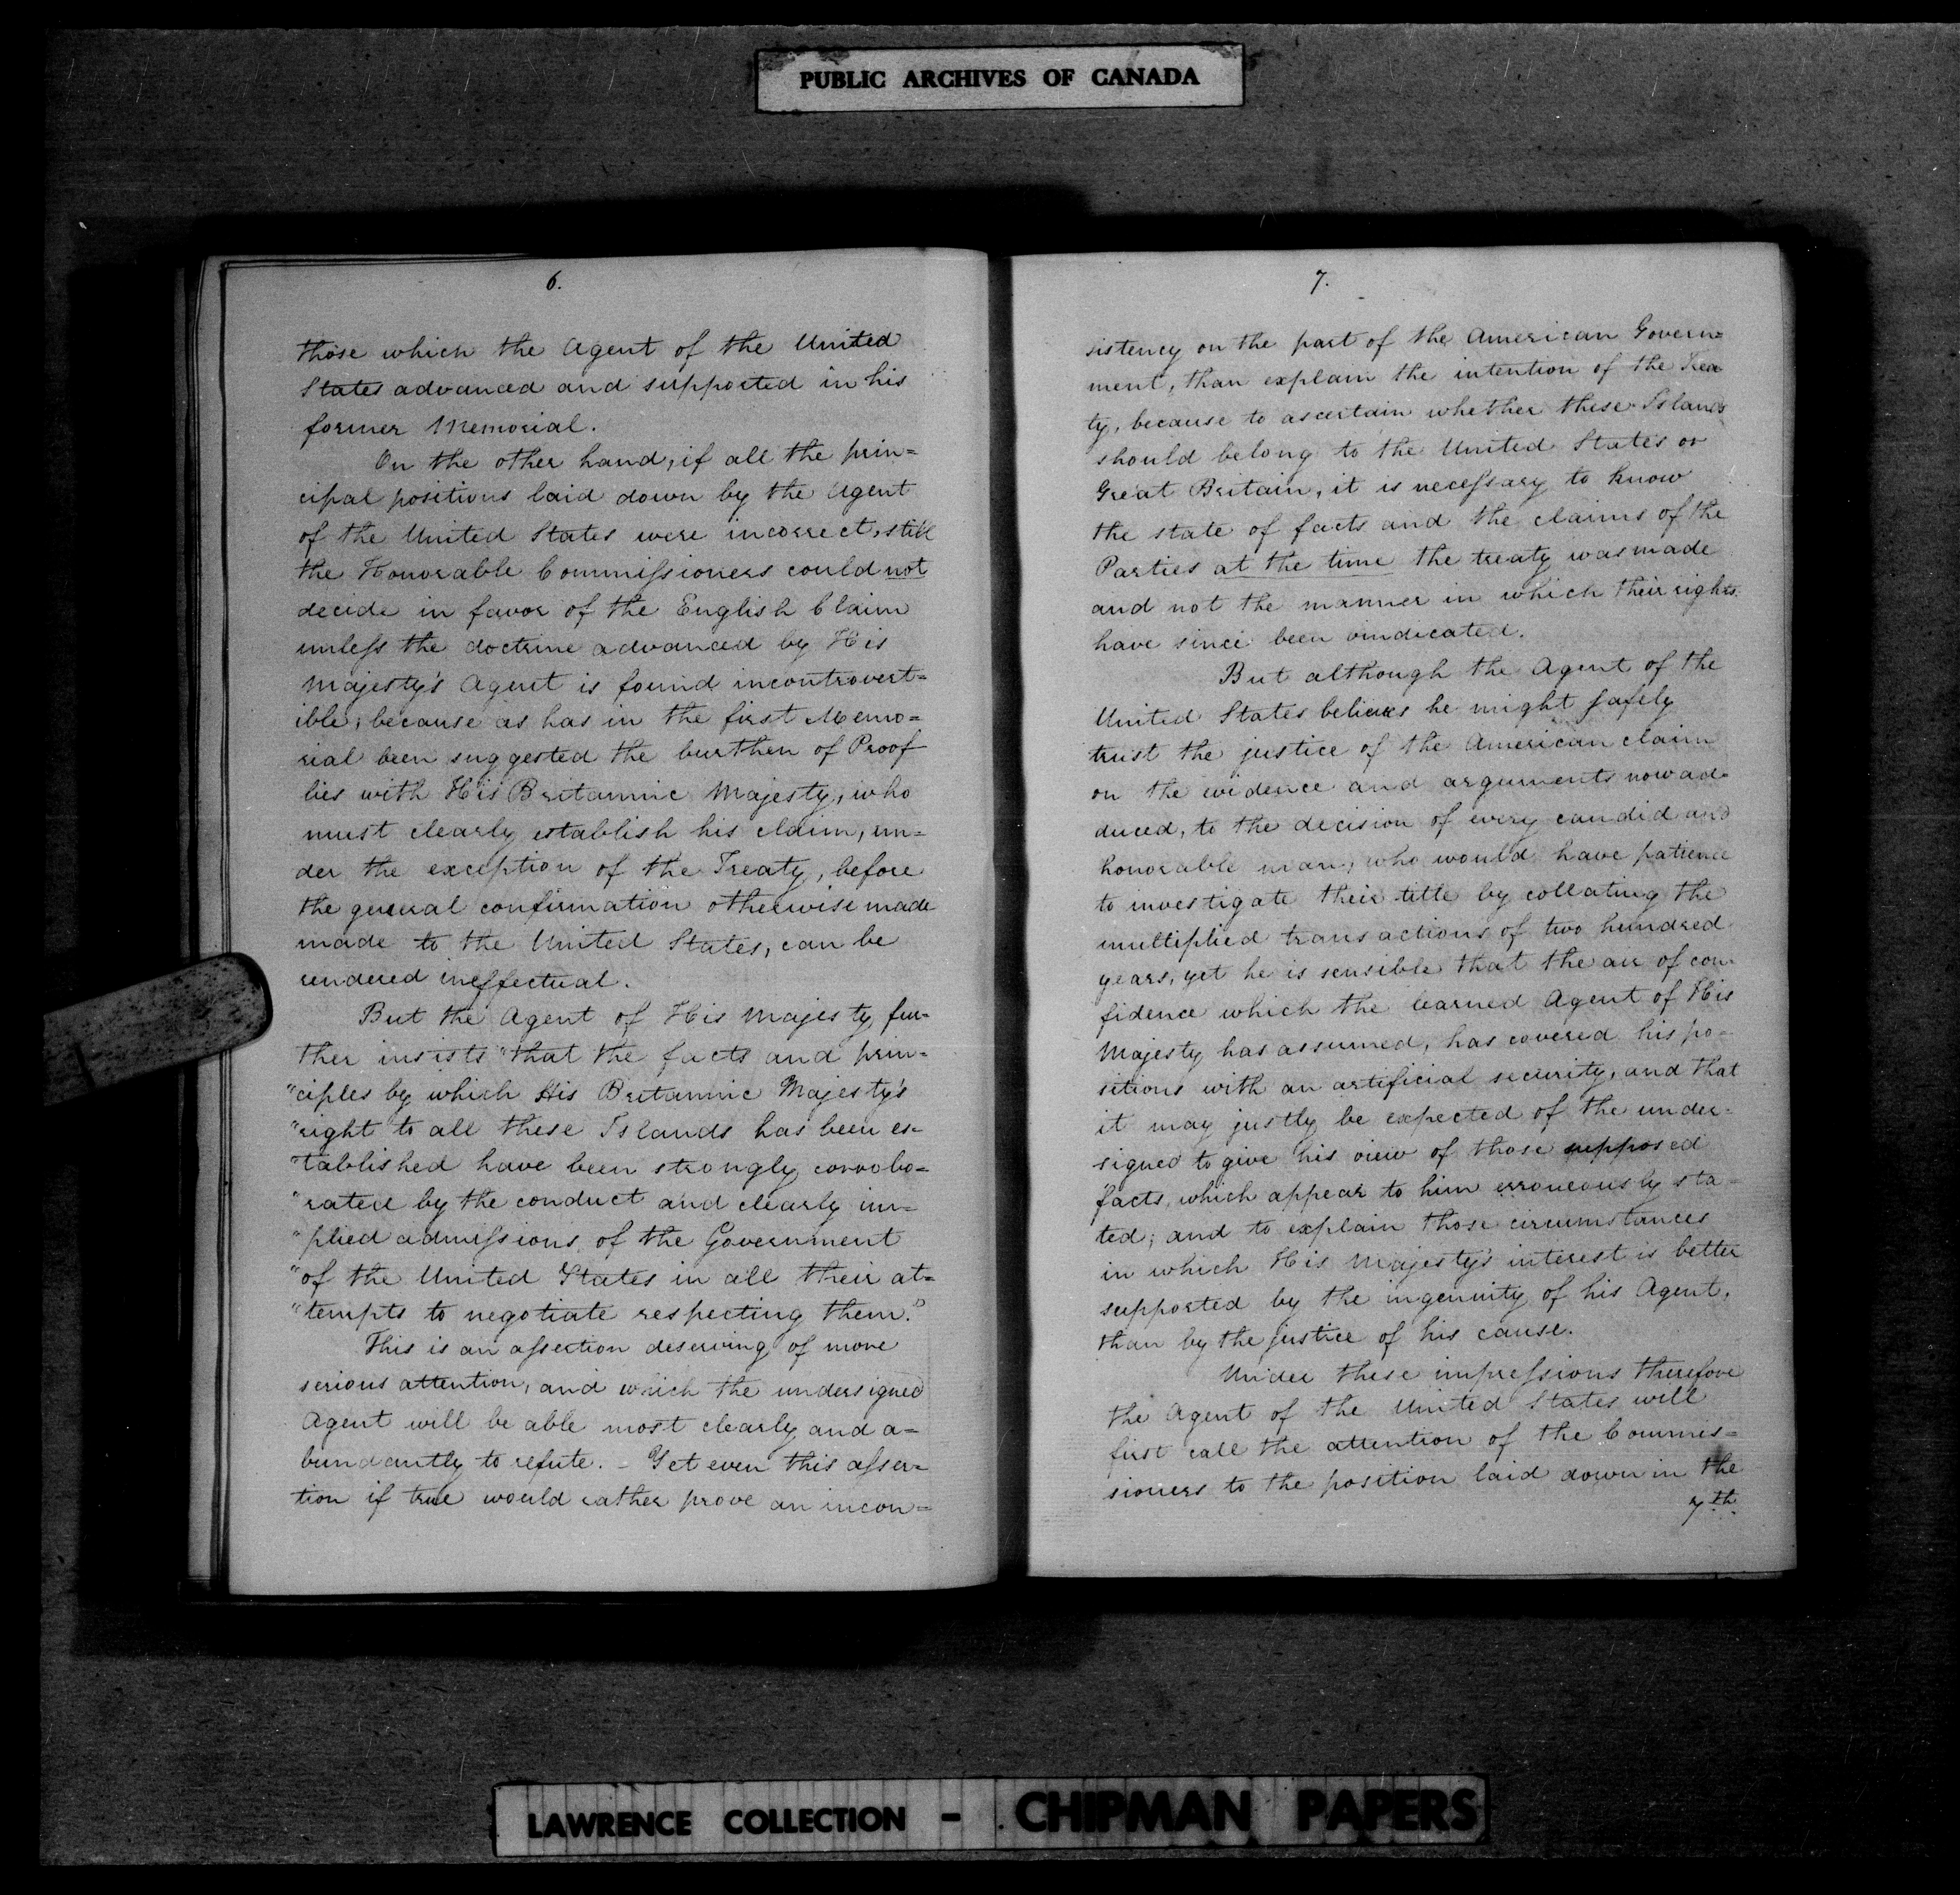 PUBLIC ARCHIVES OF CANADA
6.
those which the Agent of the United
States advanced and supported in his
former Memorial.
On the other hand, if all the prin=
cipal positions laid down by the Agent
of the United States were incorrect, still
the Honorable Commissioners could not
decide in favor of the English Claim
unless the doctrine advanced by His
Majesty's Agent is found incontrovert=
ible; because as has in the first Memo=
rial been suggested the burthen of Proof
lies with His Britannic Majesty, who
must clearly establish his claim, un=
der the exception of the Treaty, before
the general confirmation otherwise made
made to the United States, can be
rendered ineffectual.
But the Agent of His Majesty fur-
ther insists "that the facts and prin-
"ciples by which His Britannic Majesty's
"right to all these Islands has been es-
"tablished have been strongly corrobo=
"rated by the conduct and clearly im-
"plied admissions, of the Government
"of the United States in all their at=
"tempts to negotiate respecting them."
This is an assertion deserving of more
serious attention, and which the undersigned
Agent will be able most clearly and a=
bundantly to refute. - Yet even this asser=
tion if true would rather prove an incon=
7.
sistency on the part of the American Govern=
ment, than explain the intention of the Trea
ty, because to ascertain whether these Islands
should belong to the United States or
Great Britain, it is necessary to know
the state of facts and the claims of the
Parties at the time the treaty was made
and not the manner in which their rights
have since been vindicated.
But although the Agent of the
United States believes he might safely
trust the justice of the American claim
on the evidence and arguments now ad-
duced, to the decision of every candid and
honorable man, who would have patience
to investigate their title by collating the
multiplied transactions of two hundred
years, yet he is sensible that the air of con-
fidence which the learned Agent of His
Majesty has assumed, has covered his po-
sitions with an artificial security, and that
it may justly be expected of the under-
signed to give his view of those supposed
facts, which appear to him erroneously sta-
ted; and to explain those circumstances
in which His Majesty's interest is better
supported by the ingenuity of his Agent,
than by the justice of his cause.
Under these impressions therefore
the Agent of the United States will
first call the attention of the Commis=
sioners to the position laid down in the
7th
LAWRENCE COLLECTION - CHIPMAN PAPERS